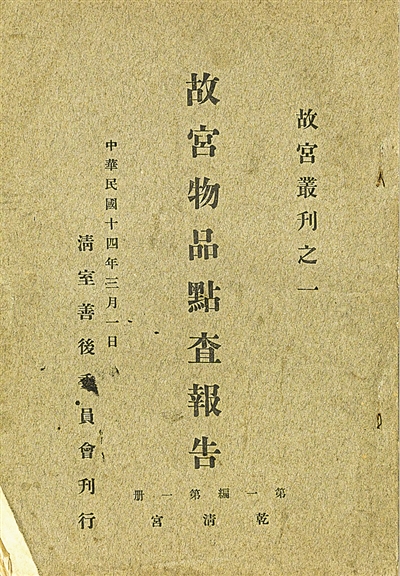 故宮叢刊之一
故宮物品點查報告
第一編第一册
乾清宮
中華民國十四年三月一日
清室善後委員會刊行